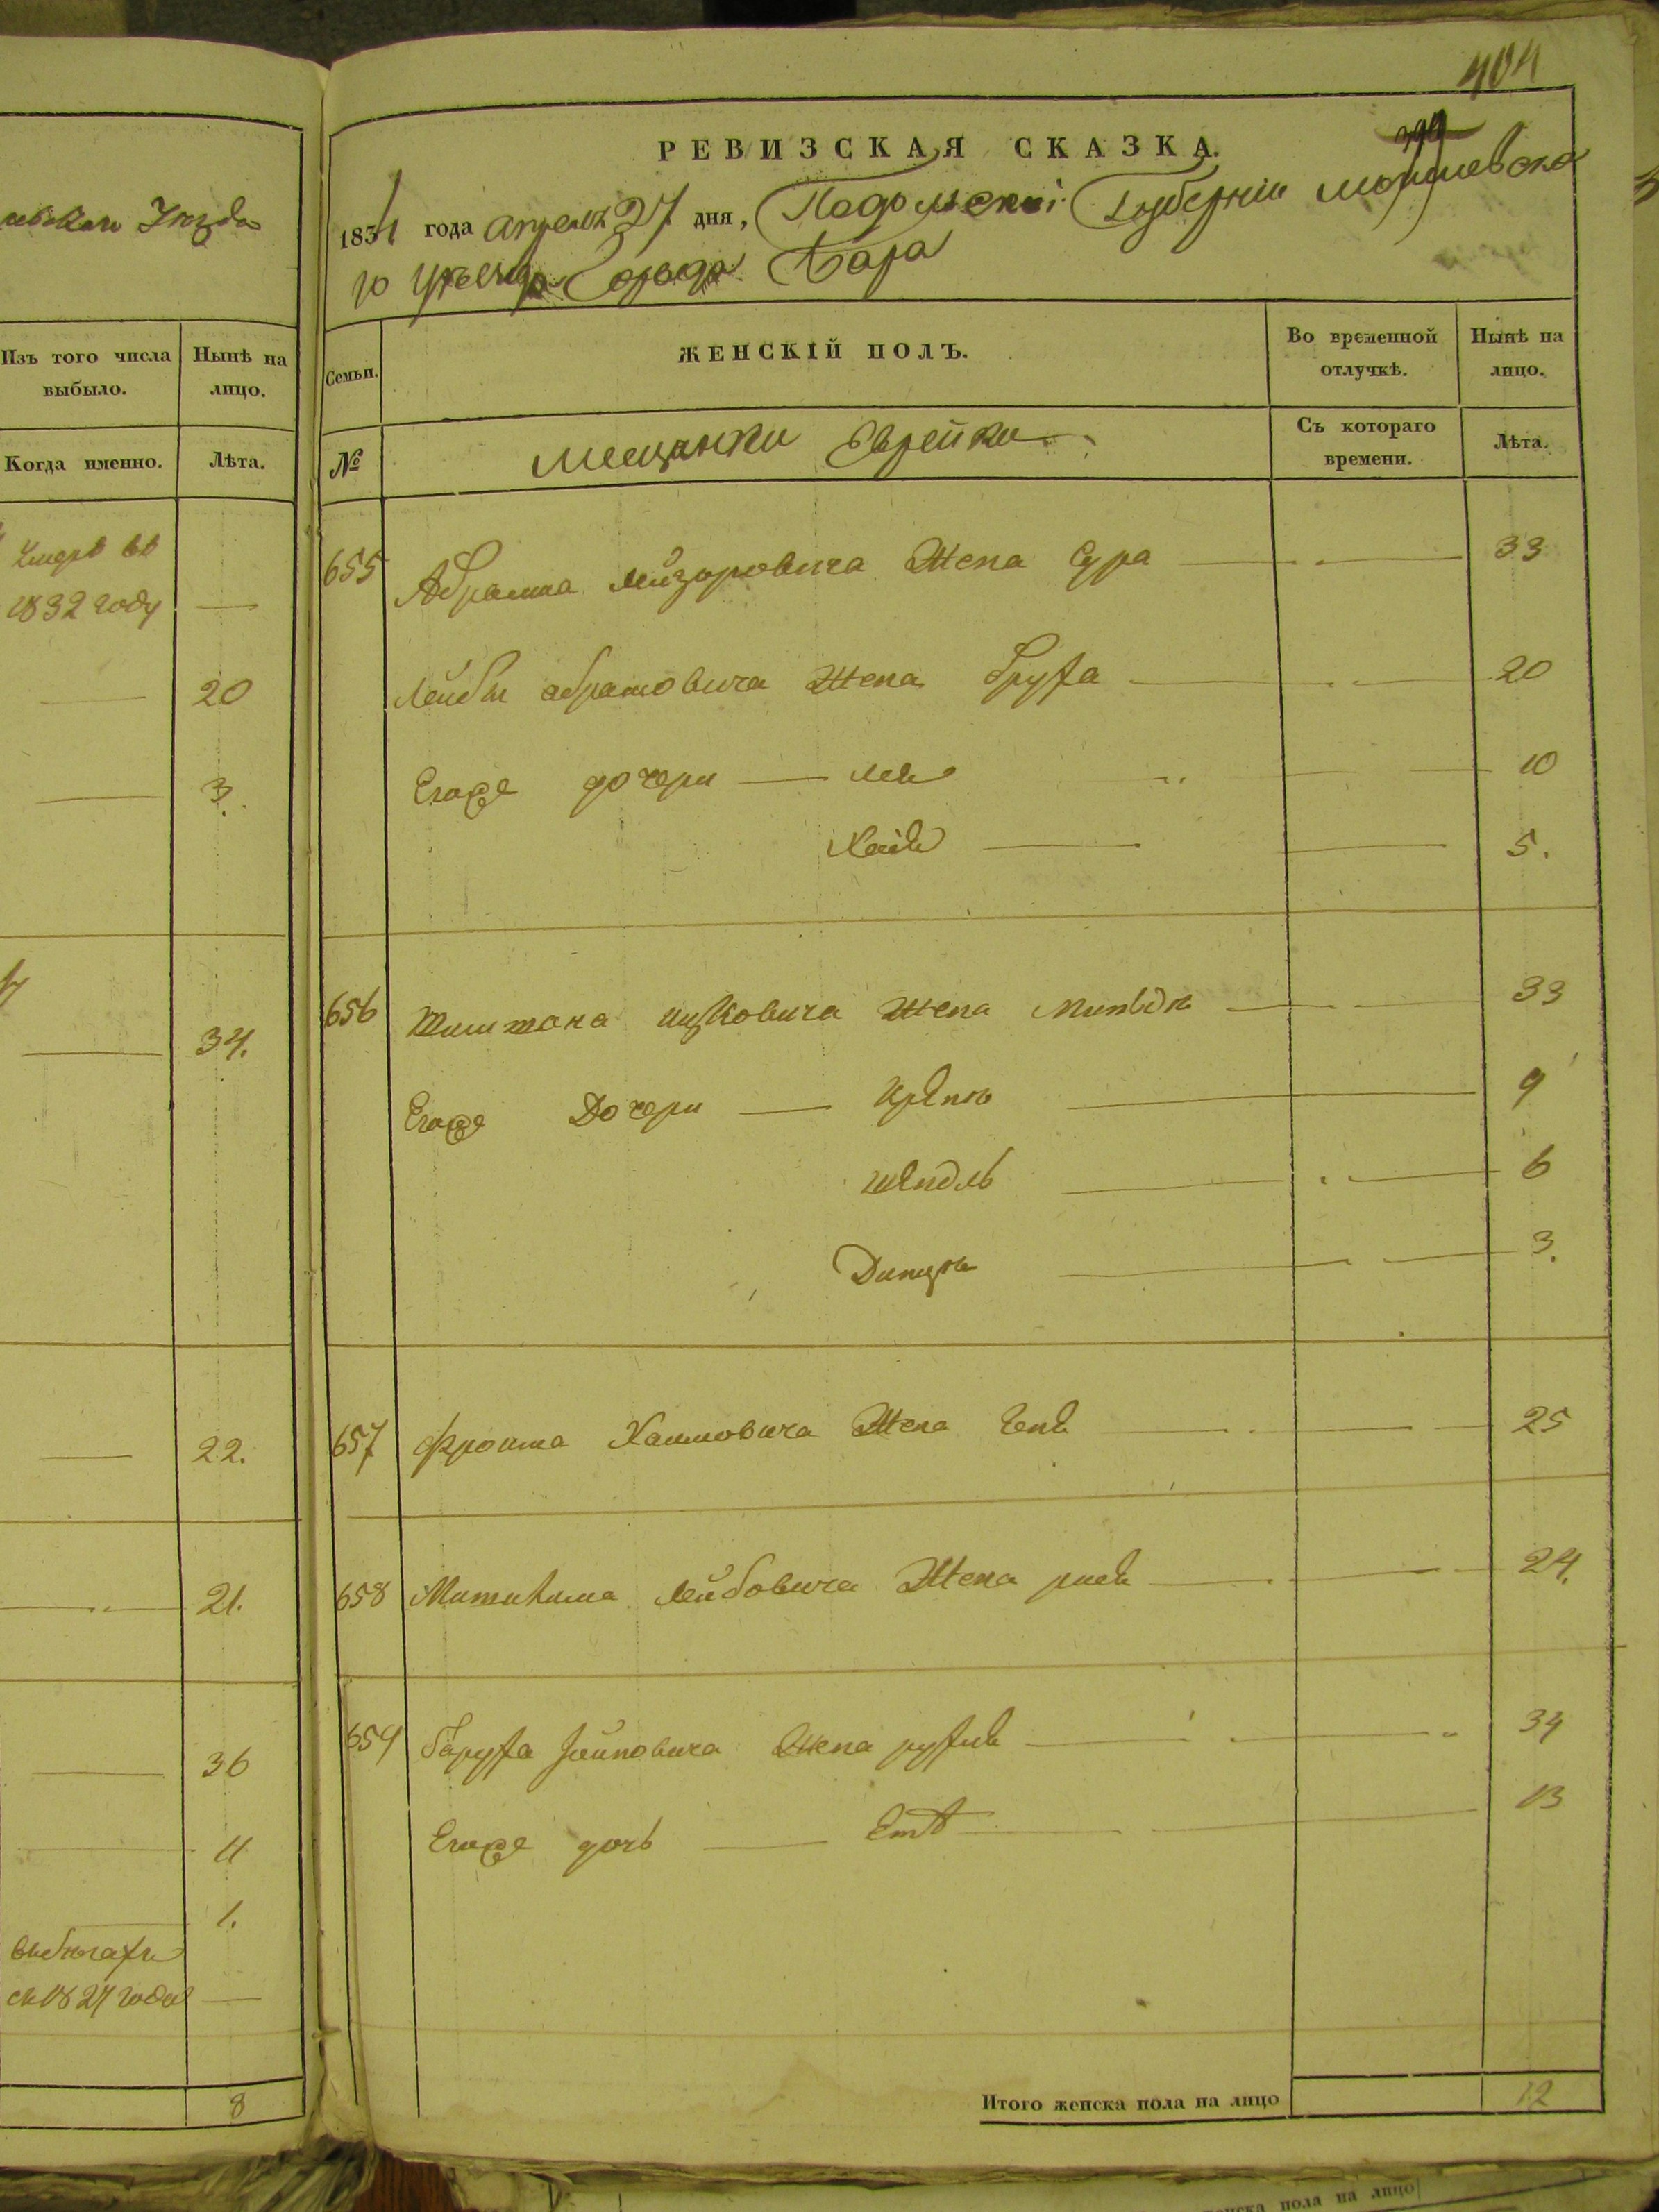 Уѣзда
Изъ того числа выбыло.
Нынѣ на лицо.
Когда именно.
Лѣта.
Умеръ въ
1832 году —
— 20
— 3.
— 34.
— 22.
— 21.
— 36
11
1.
съ 1827 года —
8
404
РЕВИЗСКАЯ СКАЗКА.
1834 года апреля 27 дня, Подольской Губерніи Могилевска
го уѣзда Города Бара
Семьи.
ЖЕНСКІЙ ПОЛЪ.
Во временной отлучкѣ.
Нынѣ на лицо.
№
Мещанки Еврейки
Съ котораго времени.
Лѣта.
655 Абрамма Лейзоровича Жена Сура — 33
Лейбы абрамовича Жена Бруха — 20
Егоже дочери — Лея 10
Хая — 5.
656 Ицковича Жена — 33
Егоже Дочери — — 9
Шейндль — 6
— 3.
657 Фроима Хаимовича Жена Геня — 25
658 Лейбовича Жена — 24.
659 Баруха Жена Рухля — 34
Егоже дочь — 13
Итого женска пола на лицо 12
нска пола на лицо